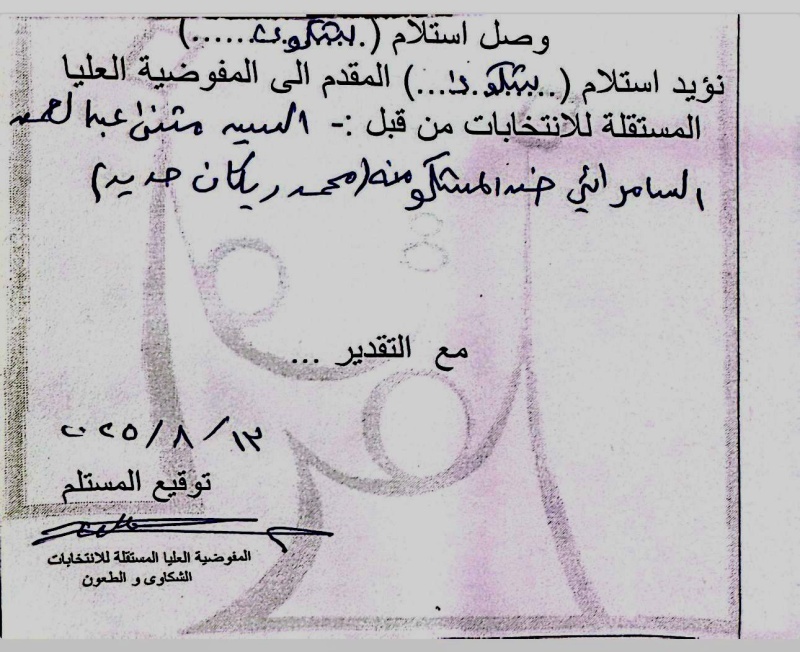 وصل استلام (..شكوى......)
نؤيد استلام (...شكوى...) المقدم الى المفوضية العليا
المستقلة للانتخابات من قبل :- السيد مثنى عبد الحميد
السامرائي ضد المشكو منه (محمد ريكان حديد)
مع التقدير ...
٢٠٢٥/٨/١٣
توقيع المستلم
المفوضية العليا المستقلة للانتخابات
الشكاوى و الطعون